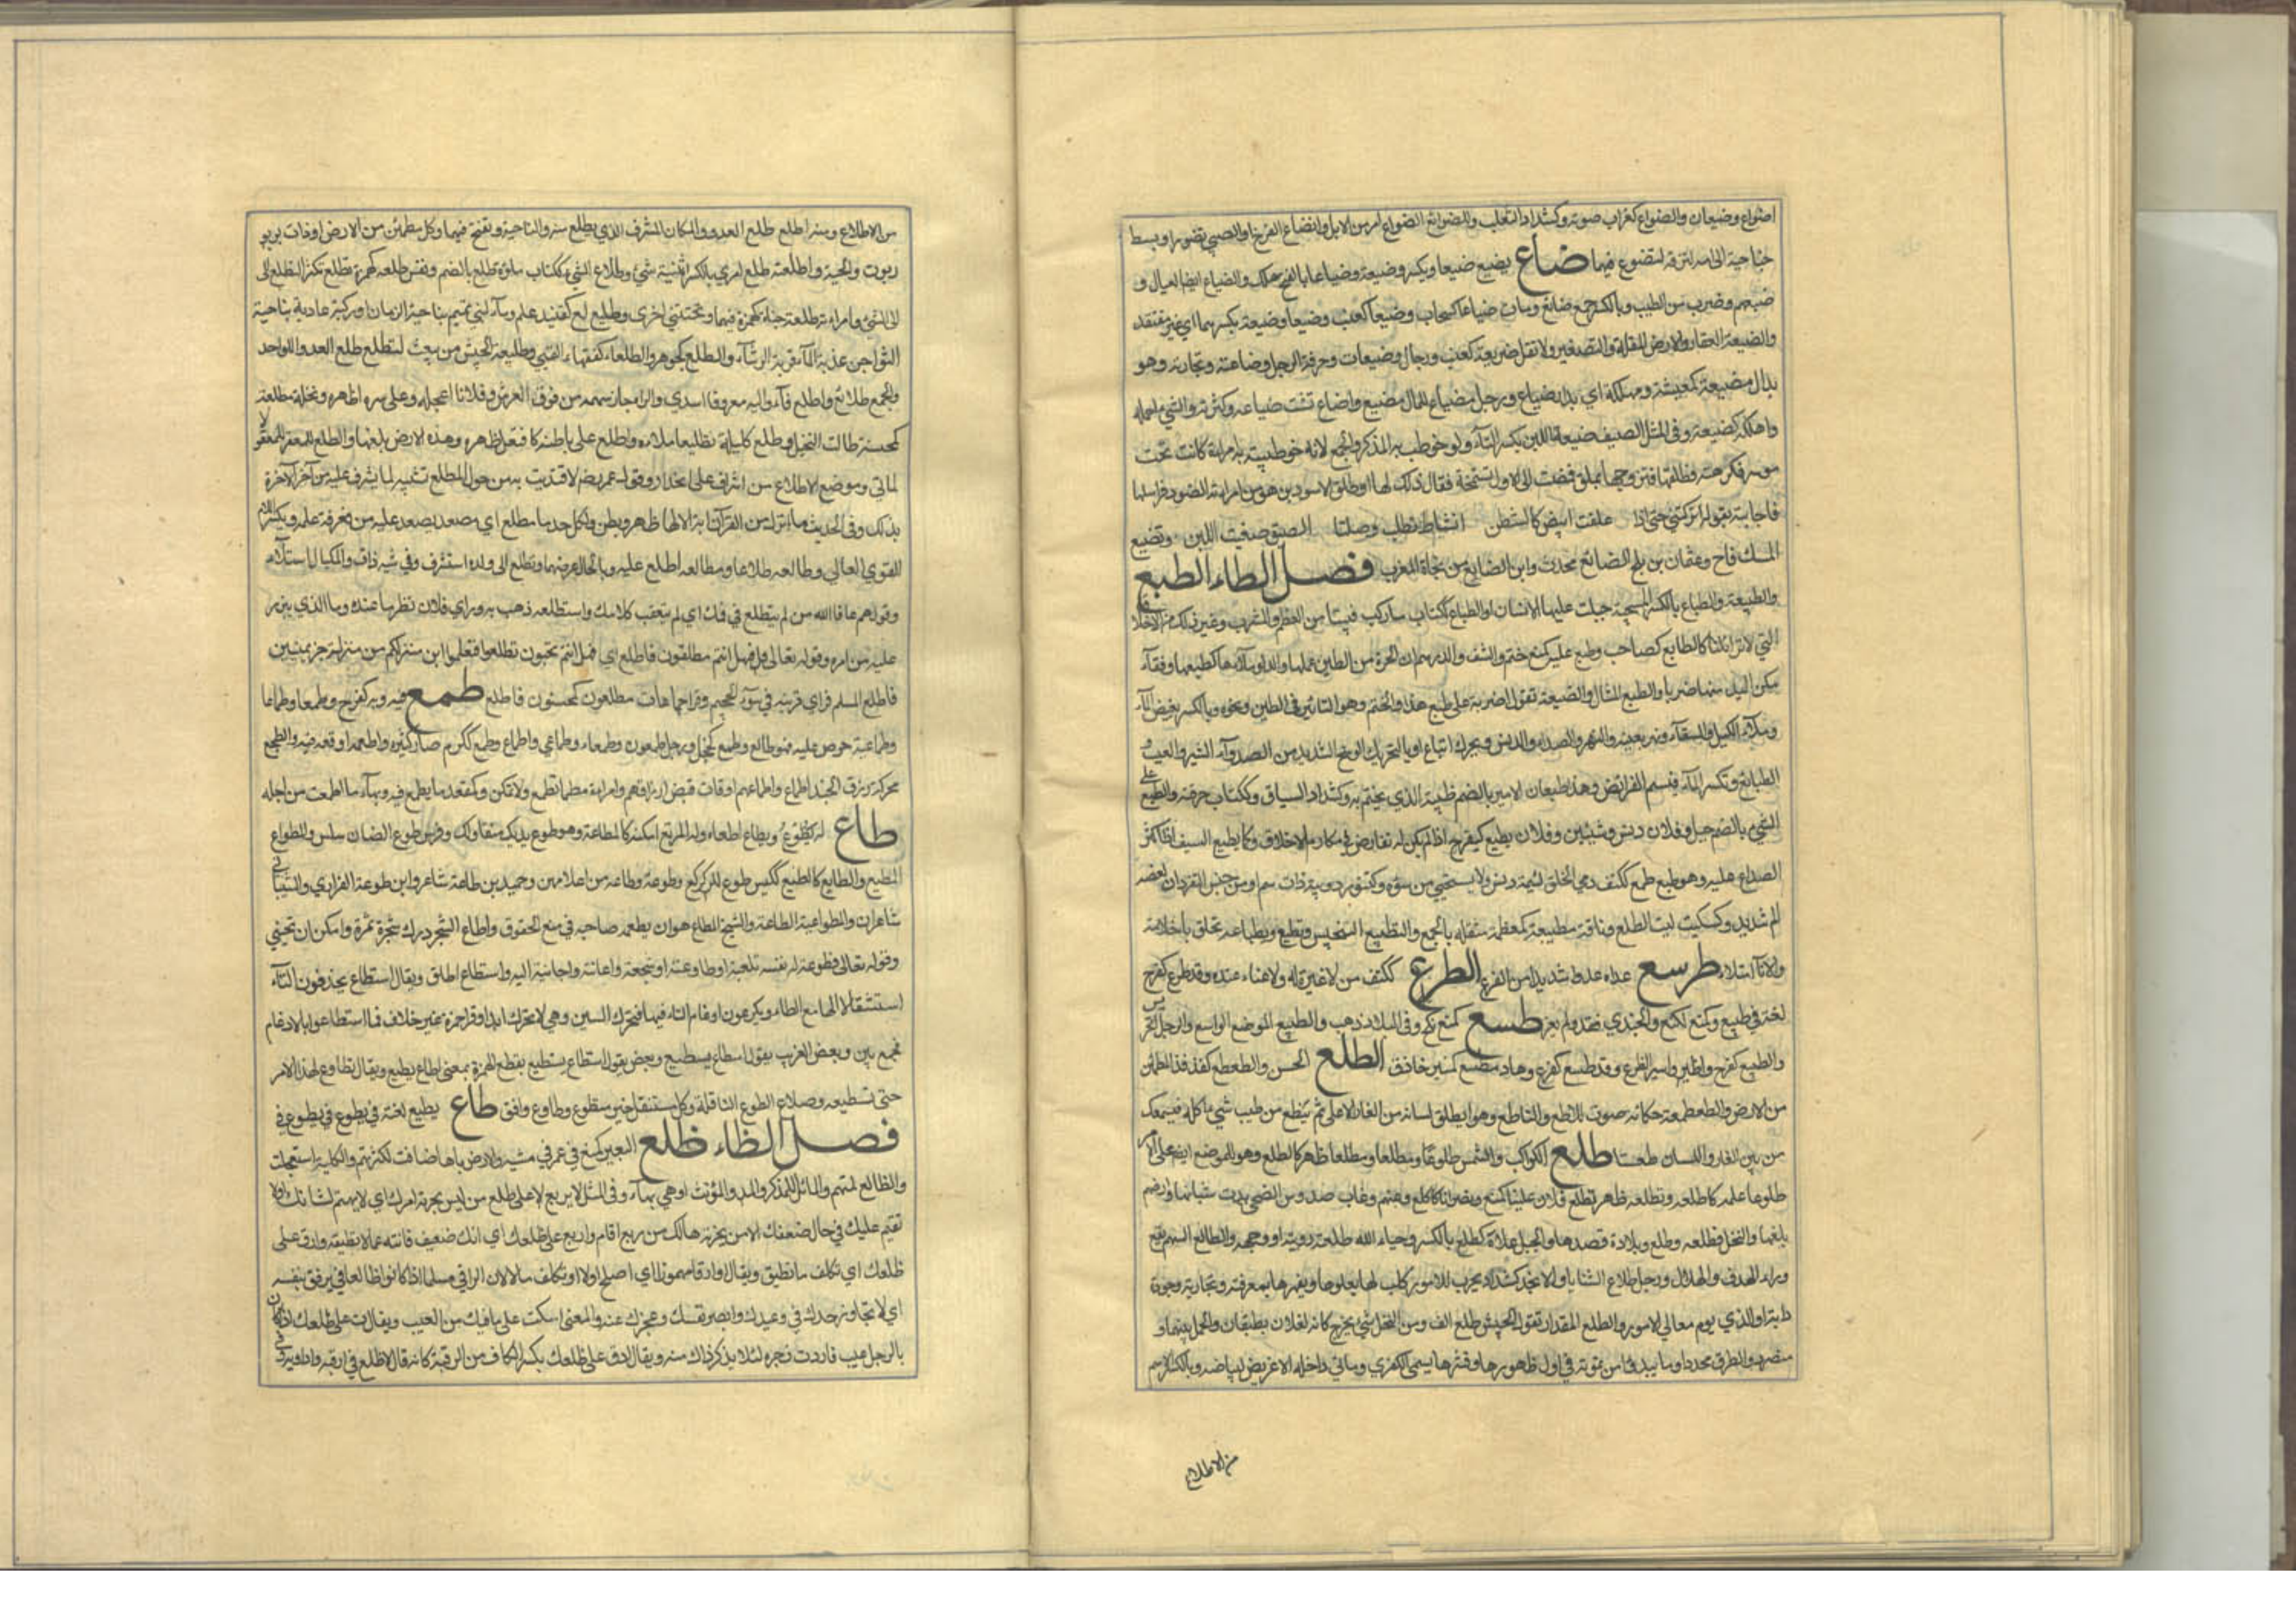 اضواع وضيعان والضواع كغراب صوته وكشداد الثعلب والضوائع الضوامر من الابل وانضاع الفرخ او الصبي تضور او بسط
جناحيه الى امه لتزقه كتضوع فيهما ضاع يضيع ضيعا ويكسر وضيعة وضياعا بالفتح هلك والضياع ايضا العيال و
ضيعهم وضرب من الطيب وبالكسر جمع ضائع ومات ضياعا كسحاب وضيعا كعنب وضيعا وضيعة بكسرهما اي غير مفتقد
والضيعة العقار والارض المغلة والتصغير ولا تقل ضويعة كعنب ورجال وضيعات وحرفة الرجل وصناعته وتجارته وهو
بدار مضيعة كمعيشة ومهلكة اي بدار ضياع ورجل مضياع للمال مضيع واضاع فشت ضياعه وكثرت والشيء اهمله
واهلكه كضيعه وفي المثل الصيف ضيعت اللبن بكسر التاء ولو خوطب به المذكر والجمع لانه خوطبت به امراة كانت تحت
موسر فكرهته فطلقها فتزوجها مملق فبعثت الى الاول تستمنحه فقال ذلك لها او طلق الاسود بن هرمز امراته العنود فراسلها
فاجابته بقولها تركتني حتى اذا علقت ابيض كالشطن انشات تطلب وصلنا الصيف ضيعت اللبن وتضيع
المسك فاح وعثمان بن بلج الضائع محدث وابن الضايع من نحاة المغرب فصل الطاء الطبع
والطبيعة والطباع بالكسر السجية جبلت عليها الانسان او الطباع ككتاب ما ركب فينا من المطعم والمشرب وغير ذلك من الاخلاق
التي لا تزايلنا كالطابع كصاحب وطبع عليه كمنع ختم والسيف والدرهم والجرة من الطين عملها والدلو ملاها كطبعها وقفاه
مكن اليد منها ضربا والطبع المثال والصيغة تقول اضربه على طبع هذا والختم وهو التاثير في الطين ونحوه وبالكسر مغيض الماء
وملء الكيل والسقاء ونهر بعينه والنهر والصدا والدنس ويحرك اتباع او بالتحريك الوسخ الشديد من الصدا والشين والعيب و
الطبائع وتكسر الباء قسم الفرائض وهذا طبعان الامير بالضم طينه الذي يختم به وكشداد السياف وككتاب حرفته وطبع على
الشيء بالضم جبل وفلان دنس وشين وفلان يطبع كيفرح اذا لم يكن له نفاذ في مكارم الاخلاق وكما يطبع السيف اذا كثر
الصدا عليه وهو طبع طمع ككتف دني الخلق لئيمه دنس لا يستحيي من سوءة وكتنور دويبة ذات سم او من جنس القردان لعضه
الم شديد وكسكيت لب الطلع وناقة مطبعة كمعظمة مثقلة بالحمل والتطبيع التنجيس وتطبع بطباعه تخلق باخلاقه
والاناء امتلا طرسع عدا عدوا شديدا من الفزع الطرع ككتف من لا غيرة له ولا غناء عنده وقد طرع كفرح
لغة في طسع وكمنع نكح والجندي فقد ولم يغز طسع كمنع نكح وفي البلاد ذهب والطسيع الموضع الواسع والرجل الحريص
والطسع كفرح واسير الطرع وقد طسع كفرح وهاد مطسع كمنبر حاذق الطلع الحس والطعطع كفدفد المطمئن
من الارض والطعطعة حكاية صوت اللاطع والناطع وهو ان يلصق لسانه من الغار الاعلى ثم ينطع من طيب شيء ياكله فيسمعك
من بين الغار واللسان طعنا طلع الكواكب والشمس طلوعا ومطلعا ومطلعا ظهر كاطلع وهو الموضع ايضا وعلى الامر
طلوعا علمه كاطلعه وتطلعه وطلع فلان علينا كمنع ونصر اتانا كاطلع وعنهم وغاب ضد وسن الصبي بدت شباتها وارضهم
بلغها والنخل خرج طلعه وطلع بلاده قصدها والجبل علاه كطلع بالكسر وحياه الله طلعته رؤيته او وجهه والطالع السهم يقع
وراء الهدف والهلال ورجل طلاع الثنايا والانجد كشداد مجرب للامور ركاب لها يعلوها ويقهرها بمعرفته وتجاربه وجودة
رايه او الذي يؤم معالي الامور والطلع المقدار تقول الجيش طلع الف ومن النخل شيء يخرج كانه نعلان مطبقان والحمل بينهما و
منضود والطرف محدد او ما يبدو من ثمرته في اول ظهورها وقشرها يسمى الكفرى وما في داخله الاغريض لبياضه وبالكسر الاسم
من الاطلاع
من الاطلاع ومنه اطلع طلع العدو والمكان المشرف الذي يطلع منه والناحية وتفتح فيهما وكل مطمئن من الارض او ذات ربوة
ربوت والحية واطلعته طلع امري بالكسر ابثثته سري وطلاع الشيء ككتاب ملؤه طلع بالضم ونفس طلعة كهمزة تطلع تكثر التطلع الى
الى الشيء وامراة طلعة خباة كهمزة فيهما تطلع مرة وتختبئ اخرى وطويلع كقنيفذ علم وماء لبني تميم بناحية الصمان او ركية عادية بناحية
الشواجن عذبة الماء قريبة الرشاء والطولع كجوهر والطلعاء كفقهاء القيء وطليعة الجيش من يبعث ليطلع طلع العدو للواحد
والجمع طلائع واطلع قاء واليه معروفا اسدى والرامي جاز سهمه من فوق الغرض وفلانا اعجله وعلى سره اظهره ونخلة مطلعة
كمحسنة طالت النخيل وطلع كيله تطليعا ملاه واطلع على باطنه كافتعل ظهر وهذه الارض بلغها والمطلع للمفعول
الماتى وموضع الاطلاع من اشراف على انحدار وقول عمر رضي لافتديت به من هول المطلع تشبيه لما يشرف عليه من امر الاخرة
بذلك وفي الحديث ما نزل من القران اية الا لها ظهر وبطن ولكل حد مطلع اي مصعد يصعد عليه من معرفة علمه وبكسر اللام
القوي العالي وطالعه طلاعا ومطالعة اطلع عليه وبالحال عرضها وتطلع الى وروده استشرف وفي مشيه زاف والمكيال امتلا
وقولهم عافى الله من لم يتطلع في فمك اي لم يتعقب كلامك واستطلعه ذهب به وراي فلان نظر ما عنده وما الذي يبرز
عليه من امره وقوله تعالى هل انتم مطلعون فاطلع اي هل انتم تحبون ان تطلعوا فتعلموا اين منزلتكم من منزلة الجهنميين
فاطلع المسلم فراى قرينه في سواء الجحيم وقرا جماعات مطلعون كمحسنون فاطلع طمع فيه وبه كفرح وطمعا وطماعا
وطماعية حرص عليه فهو طامع وطمع كخجل ورجل طمعون وطمعاء وطماعى واطماع وطمع ككرم صار كثيره واطمعه اوقعه فيه والطمع
محركة رزق الجند اطماع واطماعهم اوقات قبض ارزاقهم وامراة مطماع تطمع ولا تمكن وكمقعد ما يطمع فيه وبهاء ما اطمعت من اجله
طاع له يطوع ويطاع اطعاه وله المرتع امكنه كاطاعه وهو طوع يديك منقاد لك وفرس طوع العنان سلس والمطواع
المطيع والطايع كالطيع ككيس طوع كركع وطوعة وطاعة من اعلامهن وحميد بن طاعة شاعر وابن طوعة الفزاري والشيباني
شاعران والطواعية الطاعة والشح المطاع هو ان يطيعه صاحبه في منع الحقوق واطاع الشجر ادرك ثمره وامكن ان يجتنى
وقوله تعالى فطوعت له نفسه تابعته او طاوعته او شجعته واعانته واجابته اليه واستطاع اطاق ويقال اسطاع يحذفون التاء
استثقالا لها مع الطاء ويكرهون ادغام التاء فيها فتحرك السين وهي لا تحرك ابدا وقرا حمزة غير خلاف فما اسطاعوا بالادغام
فجمع بين وبعض العرب يقول استاع يستيع وبعض يقول اسطاع يسطيع بقطع الهمزة بمعنى اطاع يطيع ويقال تطاوع لهذا الامر
حتى تستطيعه وصلاة التطوع النافلة وكل متنفل خير متطوع وطاوع وافق طاع يطيع لغة في يطوع
فصل الظاء ظلع البعير كمنع غمز في مشيه والارض باهلها ضاقت لكثرتهم والكلبة استحرمت
والظالع المتهم والمائل للمذكر والمؤنث او هي بهاء وفي المثل لا يربع على ظلعك من ليس يحزنه امرك اي لا يهتم لشانك اولا
تقيم عليك في حال ضعفك الا من يحزنه حالك من ربع اقام واربع على ظلعك اي انك ضعيف فانته عما لا تطيقه وارق على
ظلعك اي تكلف ما تطيق ويقال ارقا مهموزا اي اصلح اولا او تكلف ما لان الراقي سلما اذا كان ظالعا يرفق بنفسه
اي لا تجاوز حدك في وعيدك وابصر نقصك وعجزك عنه والمعنى اسكت على ما فيك من العيب ويقال ق على ظلعك اذا كان
بالرجل عيب فاردت زجره لئلا يذكر ذاك منه ويقال ارق على ظلعك بكسر الكاف من الرقية كانه قال لا ظلع بي ارقيه واداويه وفي